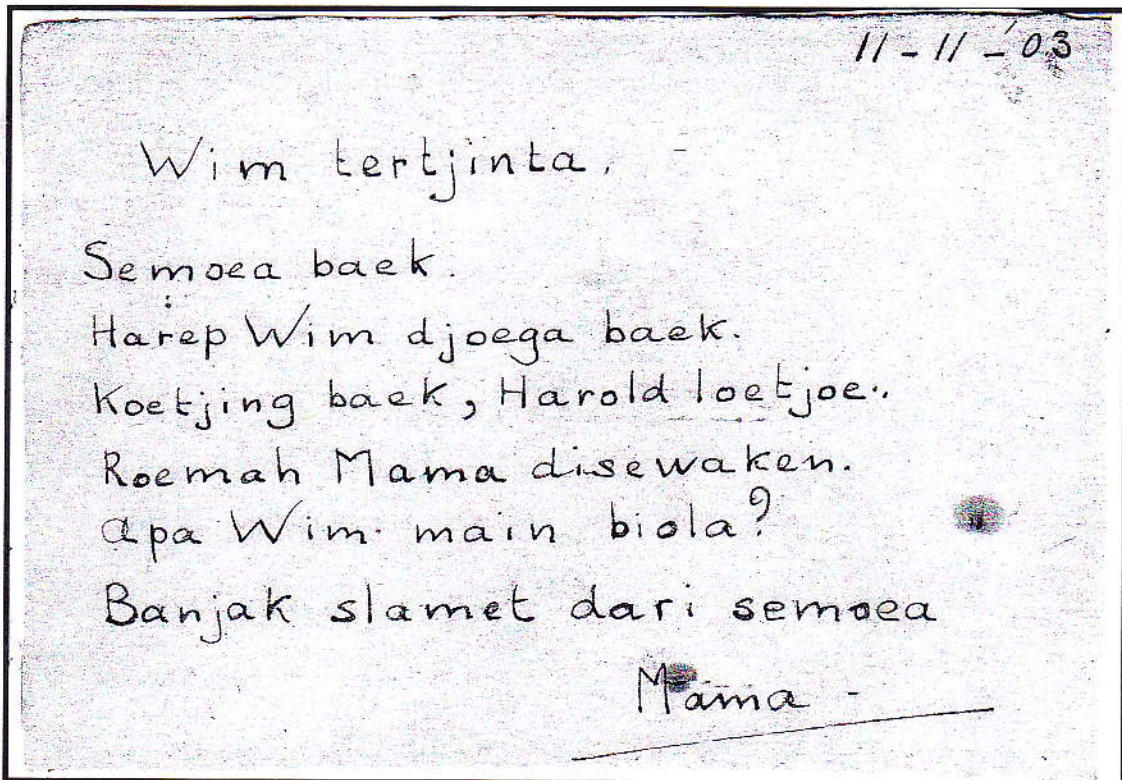 11-11-'03
Wim tertjinta.
Semoea baek.
Harep Wim djoega baek.
Koetjing baek, Harold loetjoe.
Roemah Mama disewaken.
Apa Wim main biola?
Banjak slamet dari semoea
Mama